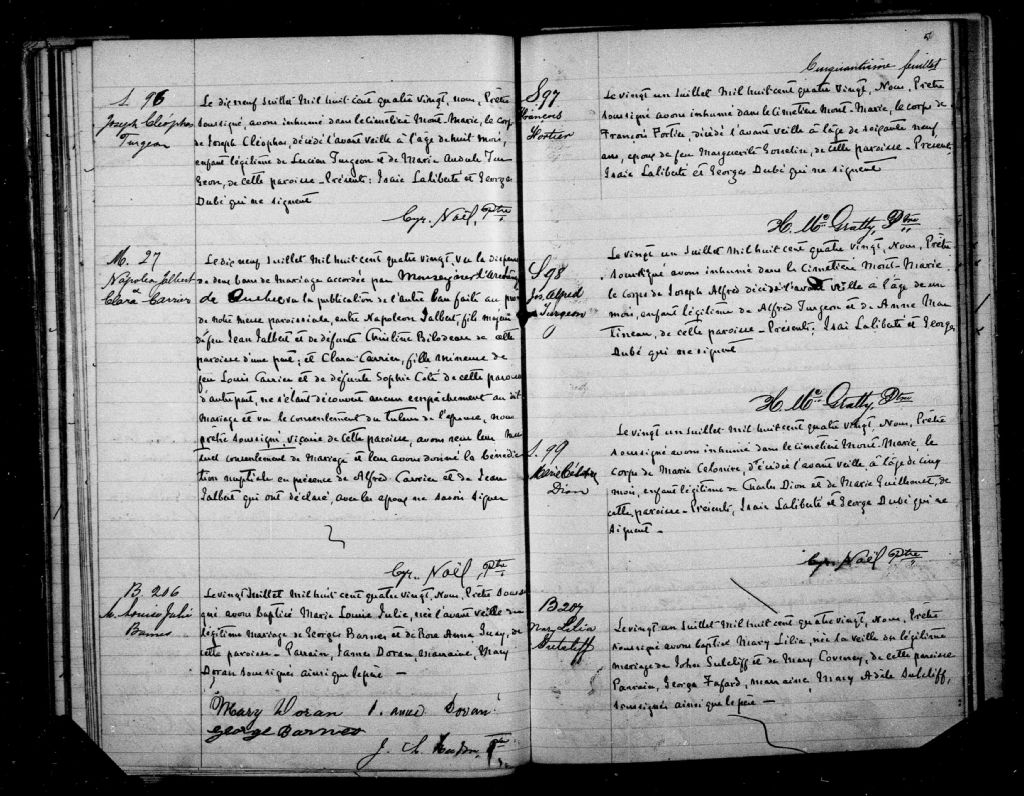 S. 96
Joseph Cléophas
Turgeon
Le dix neuf Juillet Mil huit cent quatre vingt, nous, Prêtre
soussigné, avons inhumé dans le Cimetière Mont-Marie, le corps
de Joseph Cléophas, décédé l'avant veille à l'âge de huit mois,
enfant légitime de Lucien Turgeon et de Marie Audule Tur
geon, de cette paroisse - Présents: Isaïe Laliberté et George
Dubé qui ne signent
Cyr. Noël, Ptre
M. 27
Napoléon Jalbert
et
Clara Carrier
Le dix neuf Juillet Mil huit cent quatre vingt, vu la dispense
de deux bans de mariage accordée par Monseigneur l'Archev
de Québec vu la publication de l'autre ban faite au prône
de notre messe paroissiale, entre Napoléon Jalbert, fils majeur
de feu Jean Jalbert et de défunte Christine Bilodeau de cette
paroisse d'une part; et Clara Carrier, fille mineure de
feu Louis Carrier et de défunte Sophie Côté de cette paroisse
d'autre part, ne s'étant découvert aucun empêchement au dit
Mariage et vu le consentement du tuteur de l'épouse, nous
prêtre soussigné, vicaire de cette paroisse, avons reçu leur mu
tuel consentement de Mariage et leur avons donné la bénédic
tion nuptiale en présence de Alfred Carrier et de Jean
Jalbert qui ont déclaré, avec les époux ne savoir signer
Cyr. Noël, Ptre
B. 206
M. Louise Julie
Barnes
Le vingt Juillet Mil huit cent quatre vingt, Nous, Prêtre sous
igné avons baptisé Marie Louise Julie, née l'avant veille du
légitime mariage de Georges Barnes et de Rose Anna, de
cette paroisse - Parrain, James Doran, marraine, Mary
Doran soussignés ainsi que le père -
Mary Doran Doran
George Barnes
Ptre
Cinquantième feuillet
S 97
François
Fortier
Le vingt un Juillet Mil huit cent quatre vingt, Nous, Prêtre
soussigné avons inhumé dans le cimetière Mont-Marie, le corps de
François Fortier décédé l'avant veille à l'âge de soixante neuf
ans, époux de feu Marguerite Gosselin, de cette paroisse - Présents
Isaïe Laliberté et Georges Dubé qui ne signent
H. McGratty, Ptre
S 98
Jos. Alfred
Turgeon
Le vingt un Juillet Mil huit cent quatre vingt, Nous, Prêtre
soussigné avons inhumé dans le Cimetière Mont-Marie
le corps de Joseph Alfred décédé l'avant veille à l'âge de un
mois, enfant légitime de Alfred Turgeon et de Anne Mar
tineau, de cette paroisse - Présents: Isaï Laliberté et George
Dubé qui ne signent
H. McGratty, Ptre
S. 99
Marie Célanire
Dion
Le vingt un Juillet Mil huit cent quatre vingt, Nous, Prêtre
soussigné avons inhumé dans le cimetière Mont-Marie, le
corps de Marie Celanire, décédée l'avant veille, à l'âge de cinq
mois, enfant légitime de Charles Dion et de Marie Guilhomet, de
cette paroisse - Présents, Isaïe Laliberté et George Dubé qui ne
signent -
Cyr. Noël Ptre
B 207
Mary Lilia
Sutcliff
Le vingt un Juillet Mil huit cent quatre vingt, Nous, Prêtre
soussigné avons baptisé Mary Lilia, née la veille du légitime
mariage de John Sutcliff et de Mary Coveney, de cette paroisse
Parrain, George Fafard, marraine, Mary Adèle Sutcliff,
soussignés ainsi que le père -